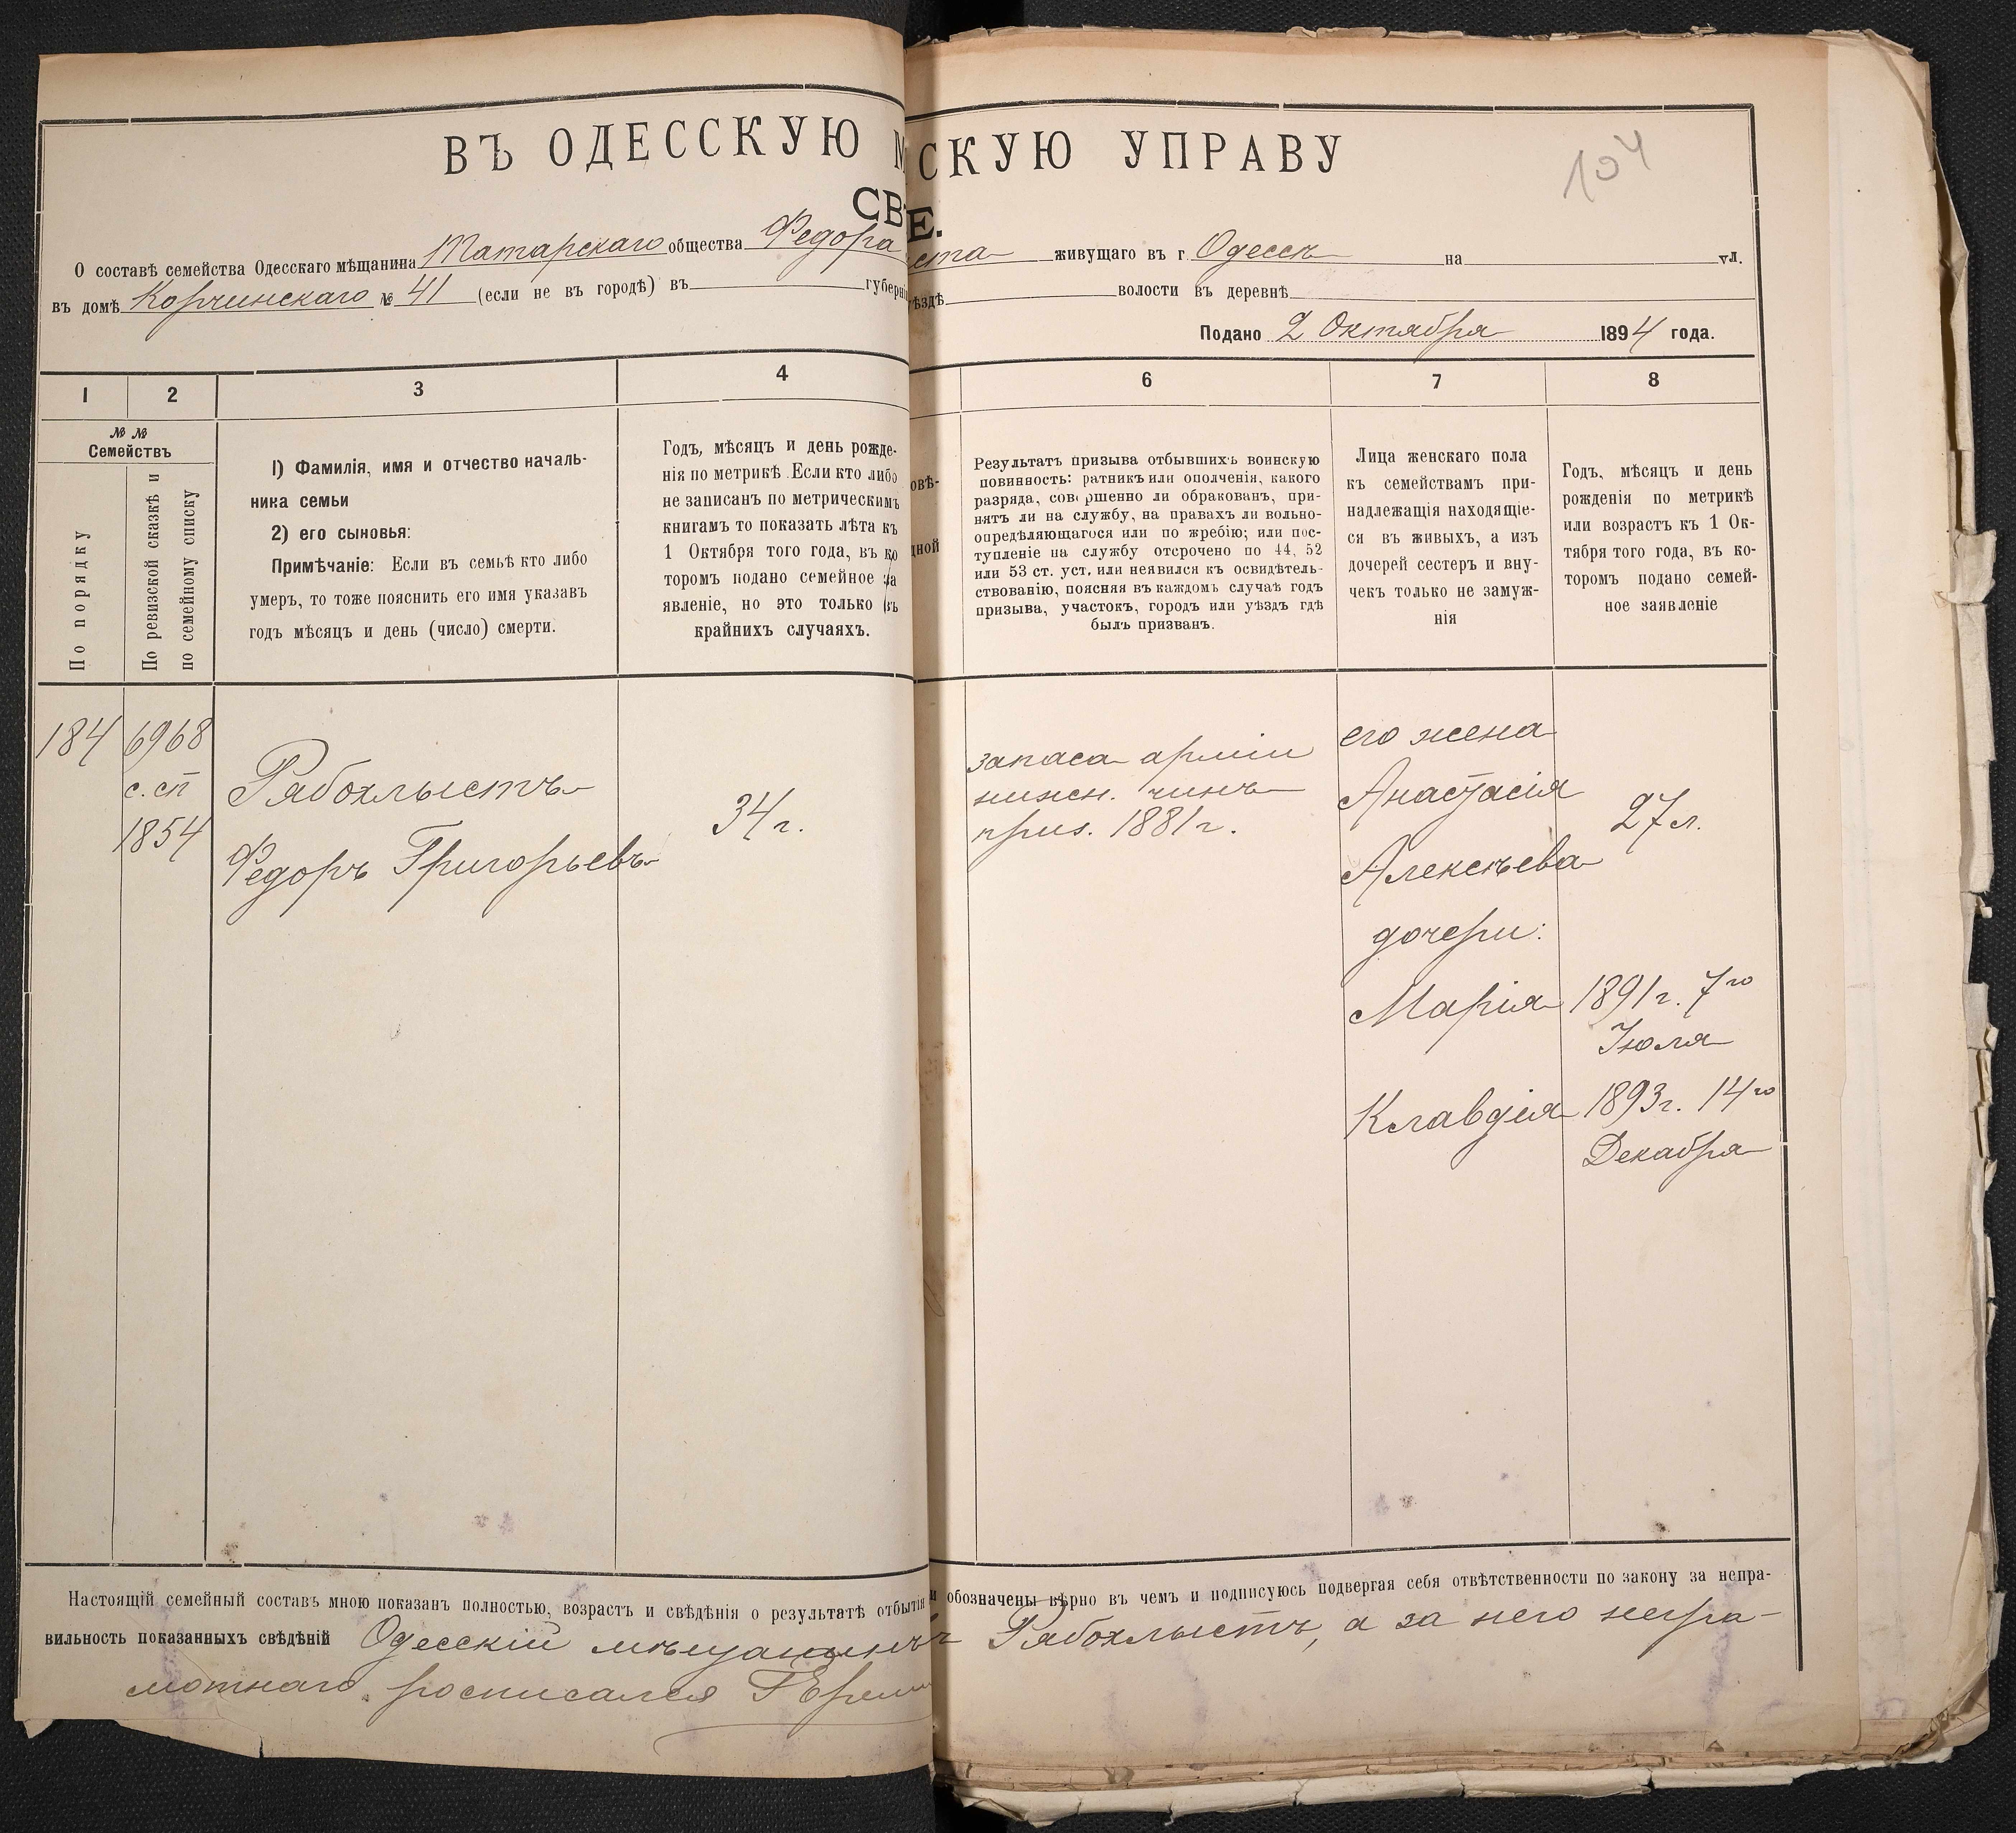 104
ВЪ ОДЕССКУЮ М СКУЮ УПРАВУ
СВ Е.
О составѣ семейства Одесскаго мѣщанина Татарскаго общества Федора ста живущаго въ г Одессѣ на ул.
въ домѣ Корчинскаго № 41 (если не въ городѣ) въ губерні ѣздѣ волости въ деревнѣ
Подано 2 Октября 1894 года.
1 2 3 4 6 7 8
№ № Семействъ
По порядку
По ревизской сказкѣ и
по семейному списку
1) Фамилія, имя и отчество началь-
ника семьи
2) его сыновья:
Примѣчаніе: Если въ семьѣ кто либо
умеръ, то тоже пояснить его имя указавъ
годъ мѣсяцъ и день (число) смерти.
Годъ, мѣсяцъ и день рожде-
нія по метрикѣ Если кто либо
не записанъ по метрическимъ
книгамъ то показать лѣта къ
1 Октября того года, въ ко
торомъ подано семейное за
явленіе, но это только въ
крайнихъ случаяхъ.
овѣ-
дной
Результатъ призыва отбывшихъ воинскую
повинность: ратникъ или ополченія, какого
разряда, совершенно ли обракованъ, при-
нятъ ли на службу, на правахъ ли вольно-
опредѣляющагося или по жребію; или пос-
тупленіе на службу отсрочено по 44, 52
или 53 ст. уст. или неявился къ освидѣтель-
ствованію, поясняя въ каждомъ случаѣ годъ
призыва, участокъ, городъ или уѣздъ гдѣ
былъ призванъ.
Лица женскаго пола
къ семействамъ при-
надлежащія находящіе-
ся въ живыхъ, а изъ
дочерей сестеръ и вну-
чекъ только не замуж-
нія
Годъ, мѣсяцъ и день
рожденія по метрикѣ
или возрастъ къ 1 Ок-
тября того года, въ ко-
торомъ подано семей-
ное заявленіе
184 6968
с. сп
1854
Рябохлыстъ
Федоръ Григорьевъ
34 г.
запаса арміи
нижн. чинъ
приз. 1881 г.
его жена
Анастасія
Алексѣева
27 л.
дочери:
Марія 1891 г. 7го
Іюля
Клавдія 1893 г. 14го
Декабря
Настоящій семейный составъ мною показанъ полностью, возрастъ и свѣдѣнія о результатѣ отбытія и обозначены вѣрно въ чемъ и подписуюсь подвергая себя отвѣтственности по закону за непра-
вильность показанныхъ свѣдѣній Одесскій мѣщанинъ Рябохлыстъ, а за него негра-
мотнаго росписался